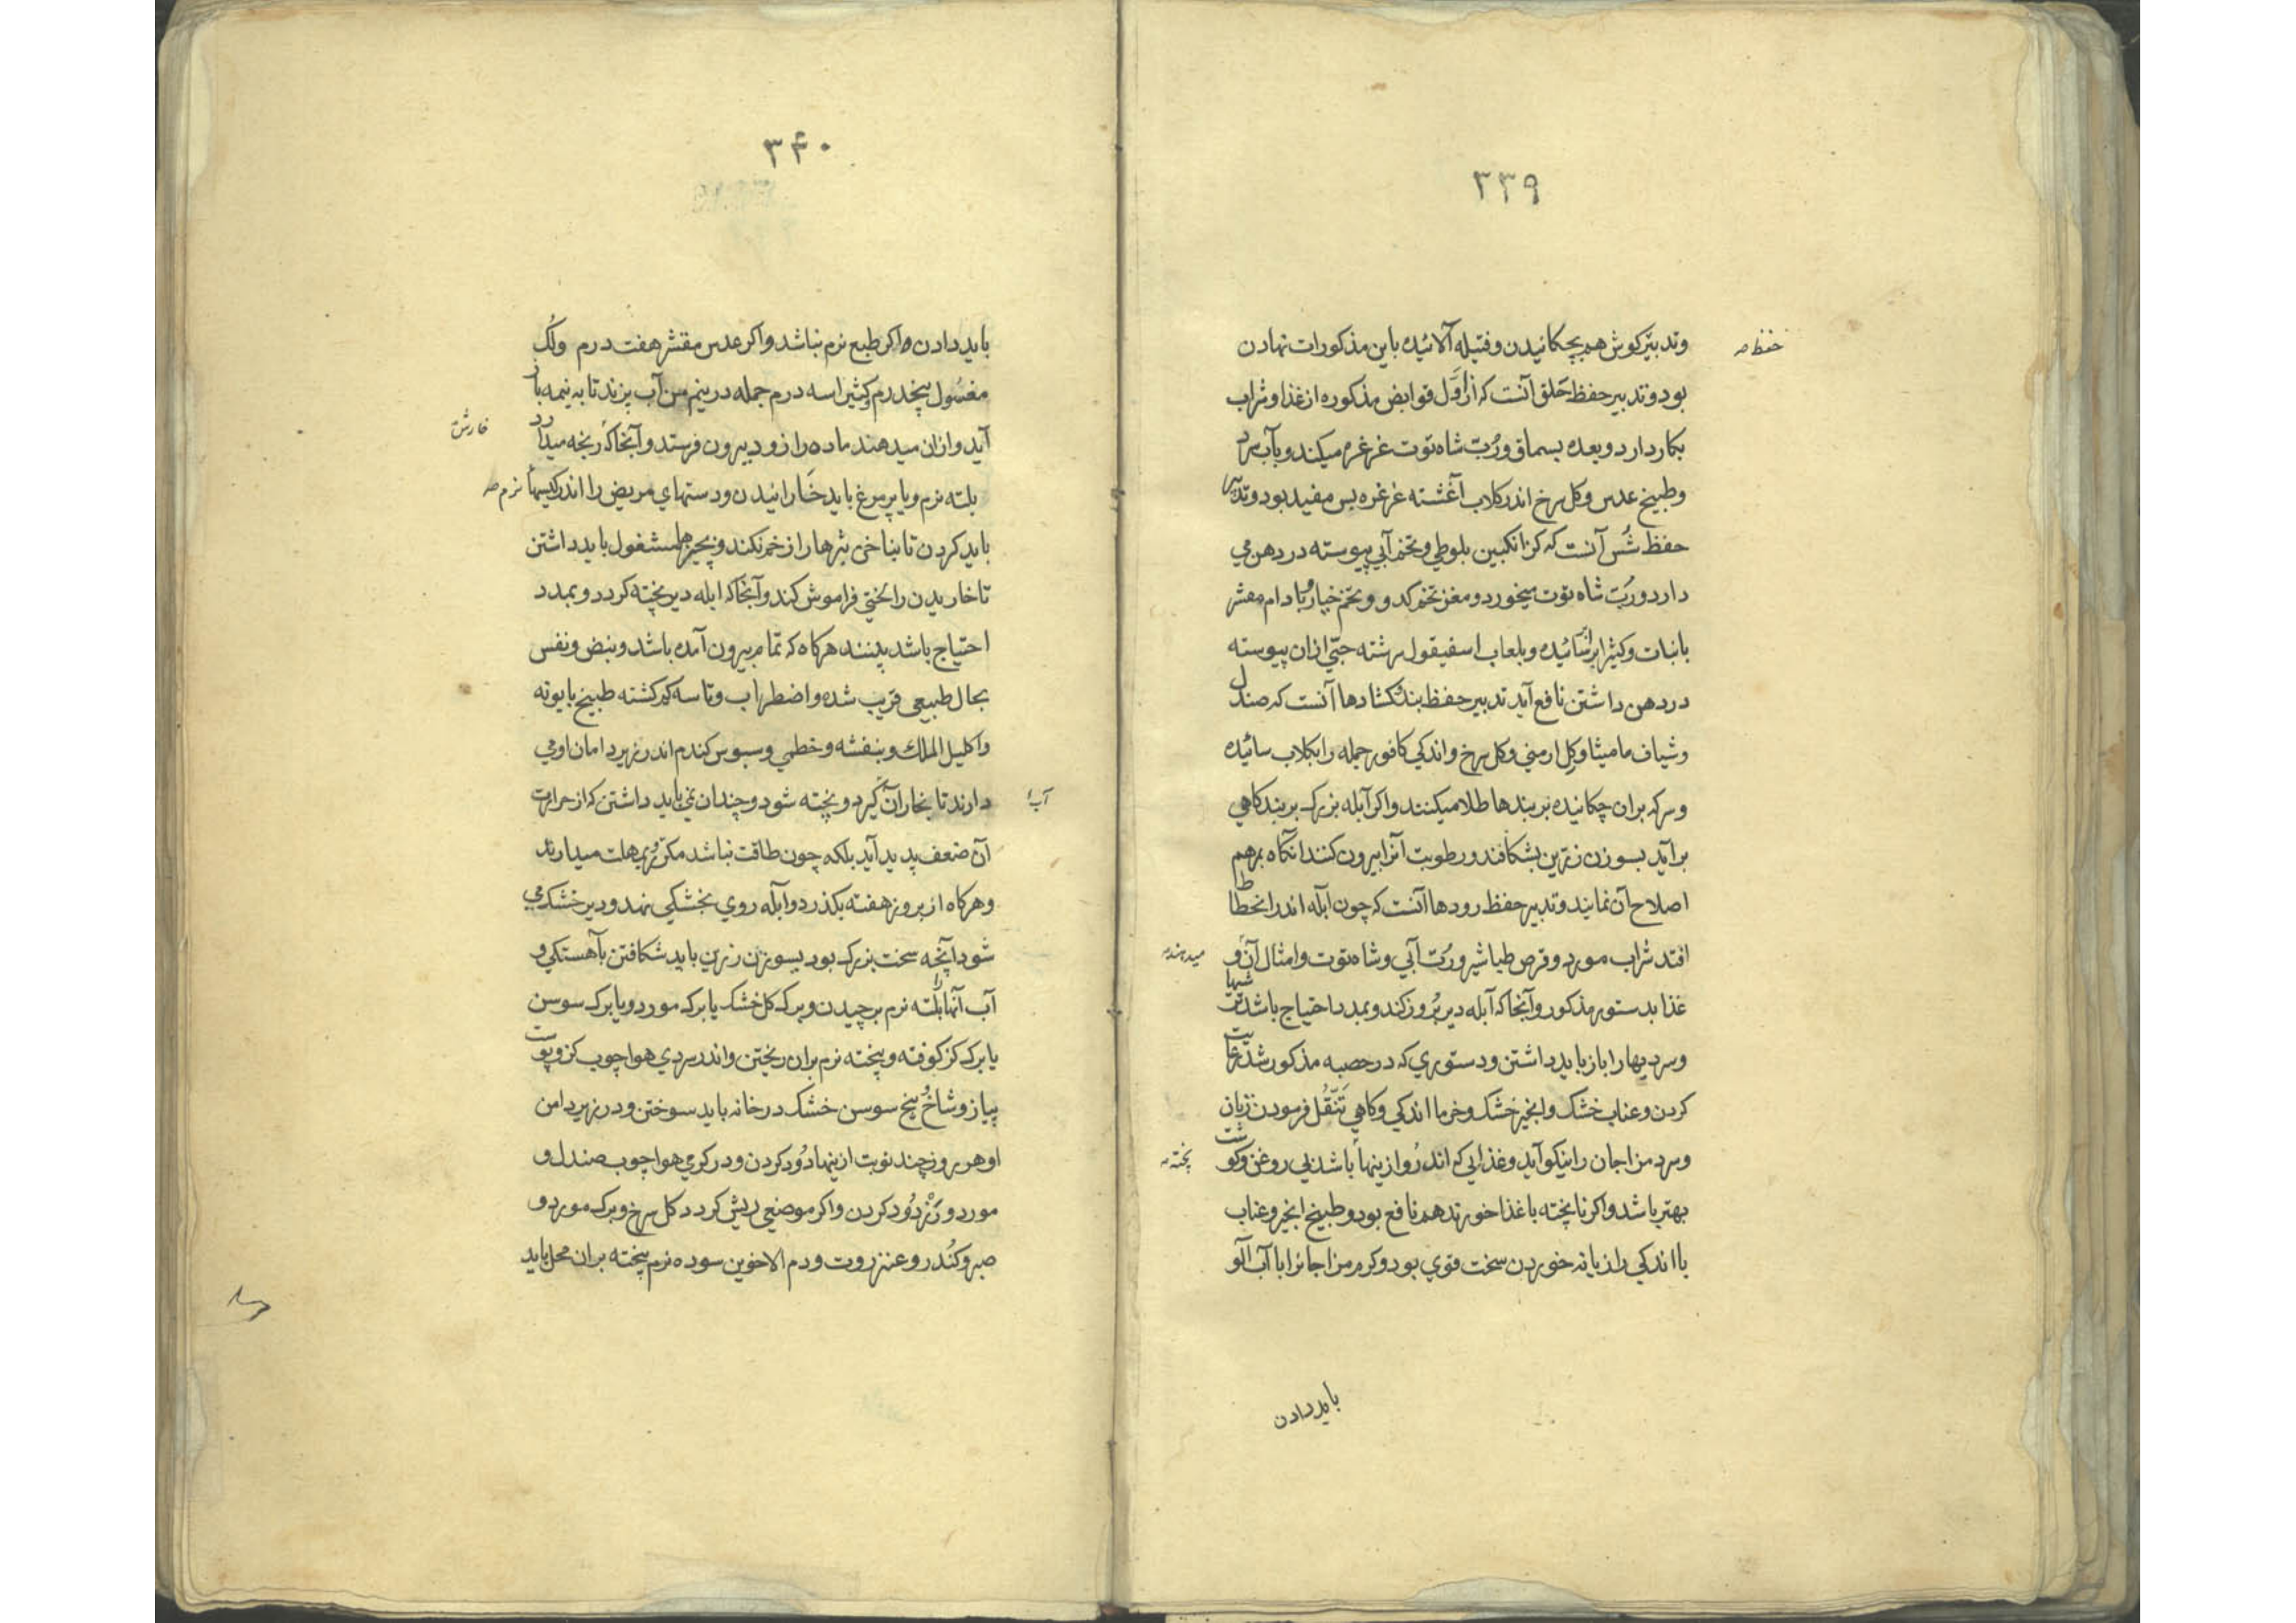 ۳۳۹
وتدبیر کوش هم بچکانیدن وفتیله آلائیده باین مذکورات نهادن
حفظ صه
بود وتدبیر حفظ حلق آنست که از اوّل قوابض مذکوره از غذا وشراب
بکار دارد وبعده بسماق ورُبّ شاه توت غرغره میکند وبآب سرد
وطبیخ عدس وکل سرخ اندر کلاب آغشته غرغره بس مفید بود وتدبیر
حفظ شُس آنست که کزانکبین بلوطی وتخم آبی پیوسته در دهن می
دارد ورُبّ شاه توت میخورد ومغز تخم کدو وتخم خیار وبادام مقشر
بانبات وکثیرا برسائیده وبلعاب اسفیقول سرشته حبّی ازان پیوسته
در دهن داشتن نافع آید تدبیر حفظ بندکشادها آنست که صندل
وشیاف مامیثا وکِل ارمنی وکل سرخ واندکی کافور جمله را بکلاب سائیده
وسرکه بران چکانیده بر بندها طلا میکنند واکر آبله بزرک بر بندکاهی
برآید بسوزن زرّین بشکافند ورطوبت آنرا بیرون کنند آنکاه بمرهم
اصلاح آن نمایند وتدبیر حفظ رودها آنست که چون آبله اندر انحطاط
افتد شراب مورد وقرص طباشیر ورُبّ آبی وشاه توت وامثال آن و
میدهند
غذا بدستور مذکور وآنجا که آبله دیر بُروز کند وبمدد احتیاج باشد شبها
وسردیها را باز باید داشتن ودستوری که در حصبه مذکور شد رعایت
کردن وعناب خشک وانجیر خشک وخرما اندکی وکاهی تَنَقُّل فرمودن زیان
وسرد مزاجان را نیکو آید وغذایی که اندر او ازینها باشد بی روغن وکوشت
پخته
بهتر باشد واکر ناپخته باغذا خورند هم نافع بود وطبیخ انجیر وعناب
با اندکی رازیانه خوردن سخت قوی بود وکرم مزاجانرا با آب آلو
باید دادن
۳۴۰
باید دادن واکر طبع نرم نباشد واکر عدس مقشر هفت درم ولُکّ
مغسُول پنجدرم وکثیرا سه درم جمله در نیم من آب پزند تا به نیمه باز
آید وازان میدهند ماده را زود بیرون فرستد وآنجا که رنجه میدارد
خارش
بلته نرم ویا پر مرغ باید خارانیدن ودستهای مریض را اندر کیسها
نرم صه
باید کردن تا بناخن بثرها را زخم نکند وبچیزها مشغول باید داشتن
تا خاریدن را لختی فراموش کند وآنجا که ابله دیر پخته کردد وبمدد
احتیاج باشد بینند هرکاه که تمام بیرون آمده باشد ونبض ونفس
بحال طبیعی قریب شده واضطراب وتاسه کم کشته طبیخ بابونه
واکلیل الملک وبنفشه وخطمی وسبوس کندم اندر زیر دامان او می
دارند تا بخار آن کیرد وپخته شود وچندان نمی باید داشتن که از حرارت
آن ضعف پدید آید بلکه چون طاقت نباشد مکرّر بمهلت میدارند
وهرکاه از بروز هفته بکذرد وابله روی بخشکی نهد ودیر خشک می
شود آنچه سخت بزرک بود بسوزن زرین باید شکافتن بآهستکی و
آب آنها را بلته نرم برچیدن وبرک کل خشک یا برک مورد ویا برک سوسن
یا برک کز کوفته وبیخته نرم بران ریختن واندر سردی هوا چوب کز وپوست
پیاز وشاخ وبیخ سوسن خشک در خانه باید سوختن ودر زیر دامن
او هر روز چند نوبت ازینها دُود کردن ودر کرمی هوا چوب صندل و
مورد وکَزْ دُود کردن واکر موضعی ریش کردد کل سرخ وبرک مورد و
صبر وکُندر وعنزروت ودم الاخوین سوده نرم بیخته بران محل باید